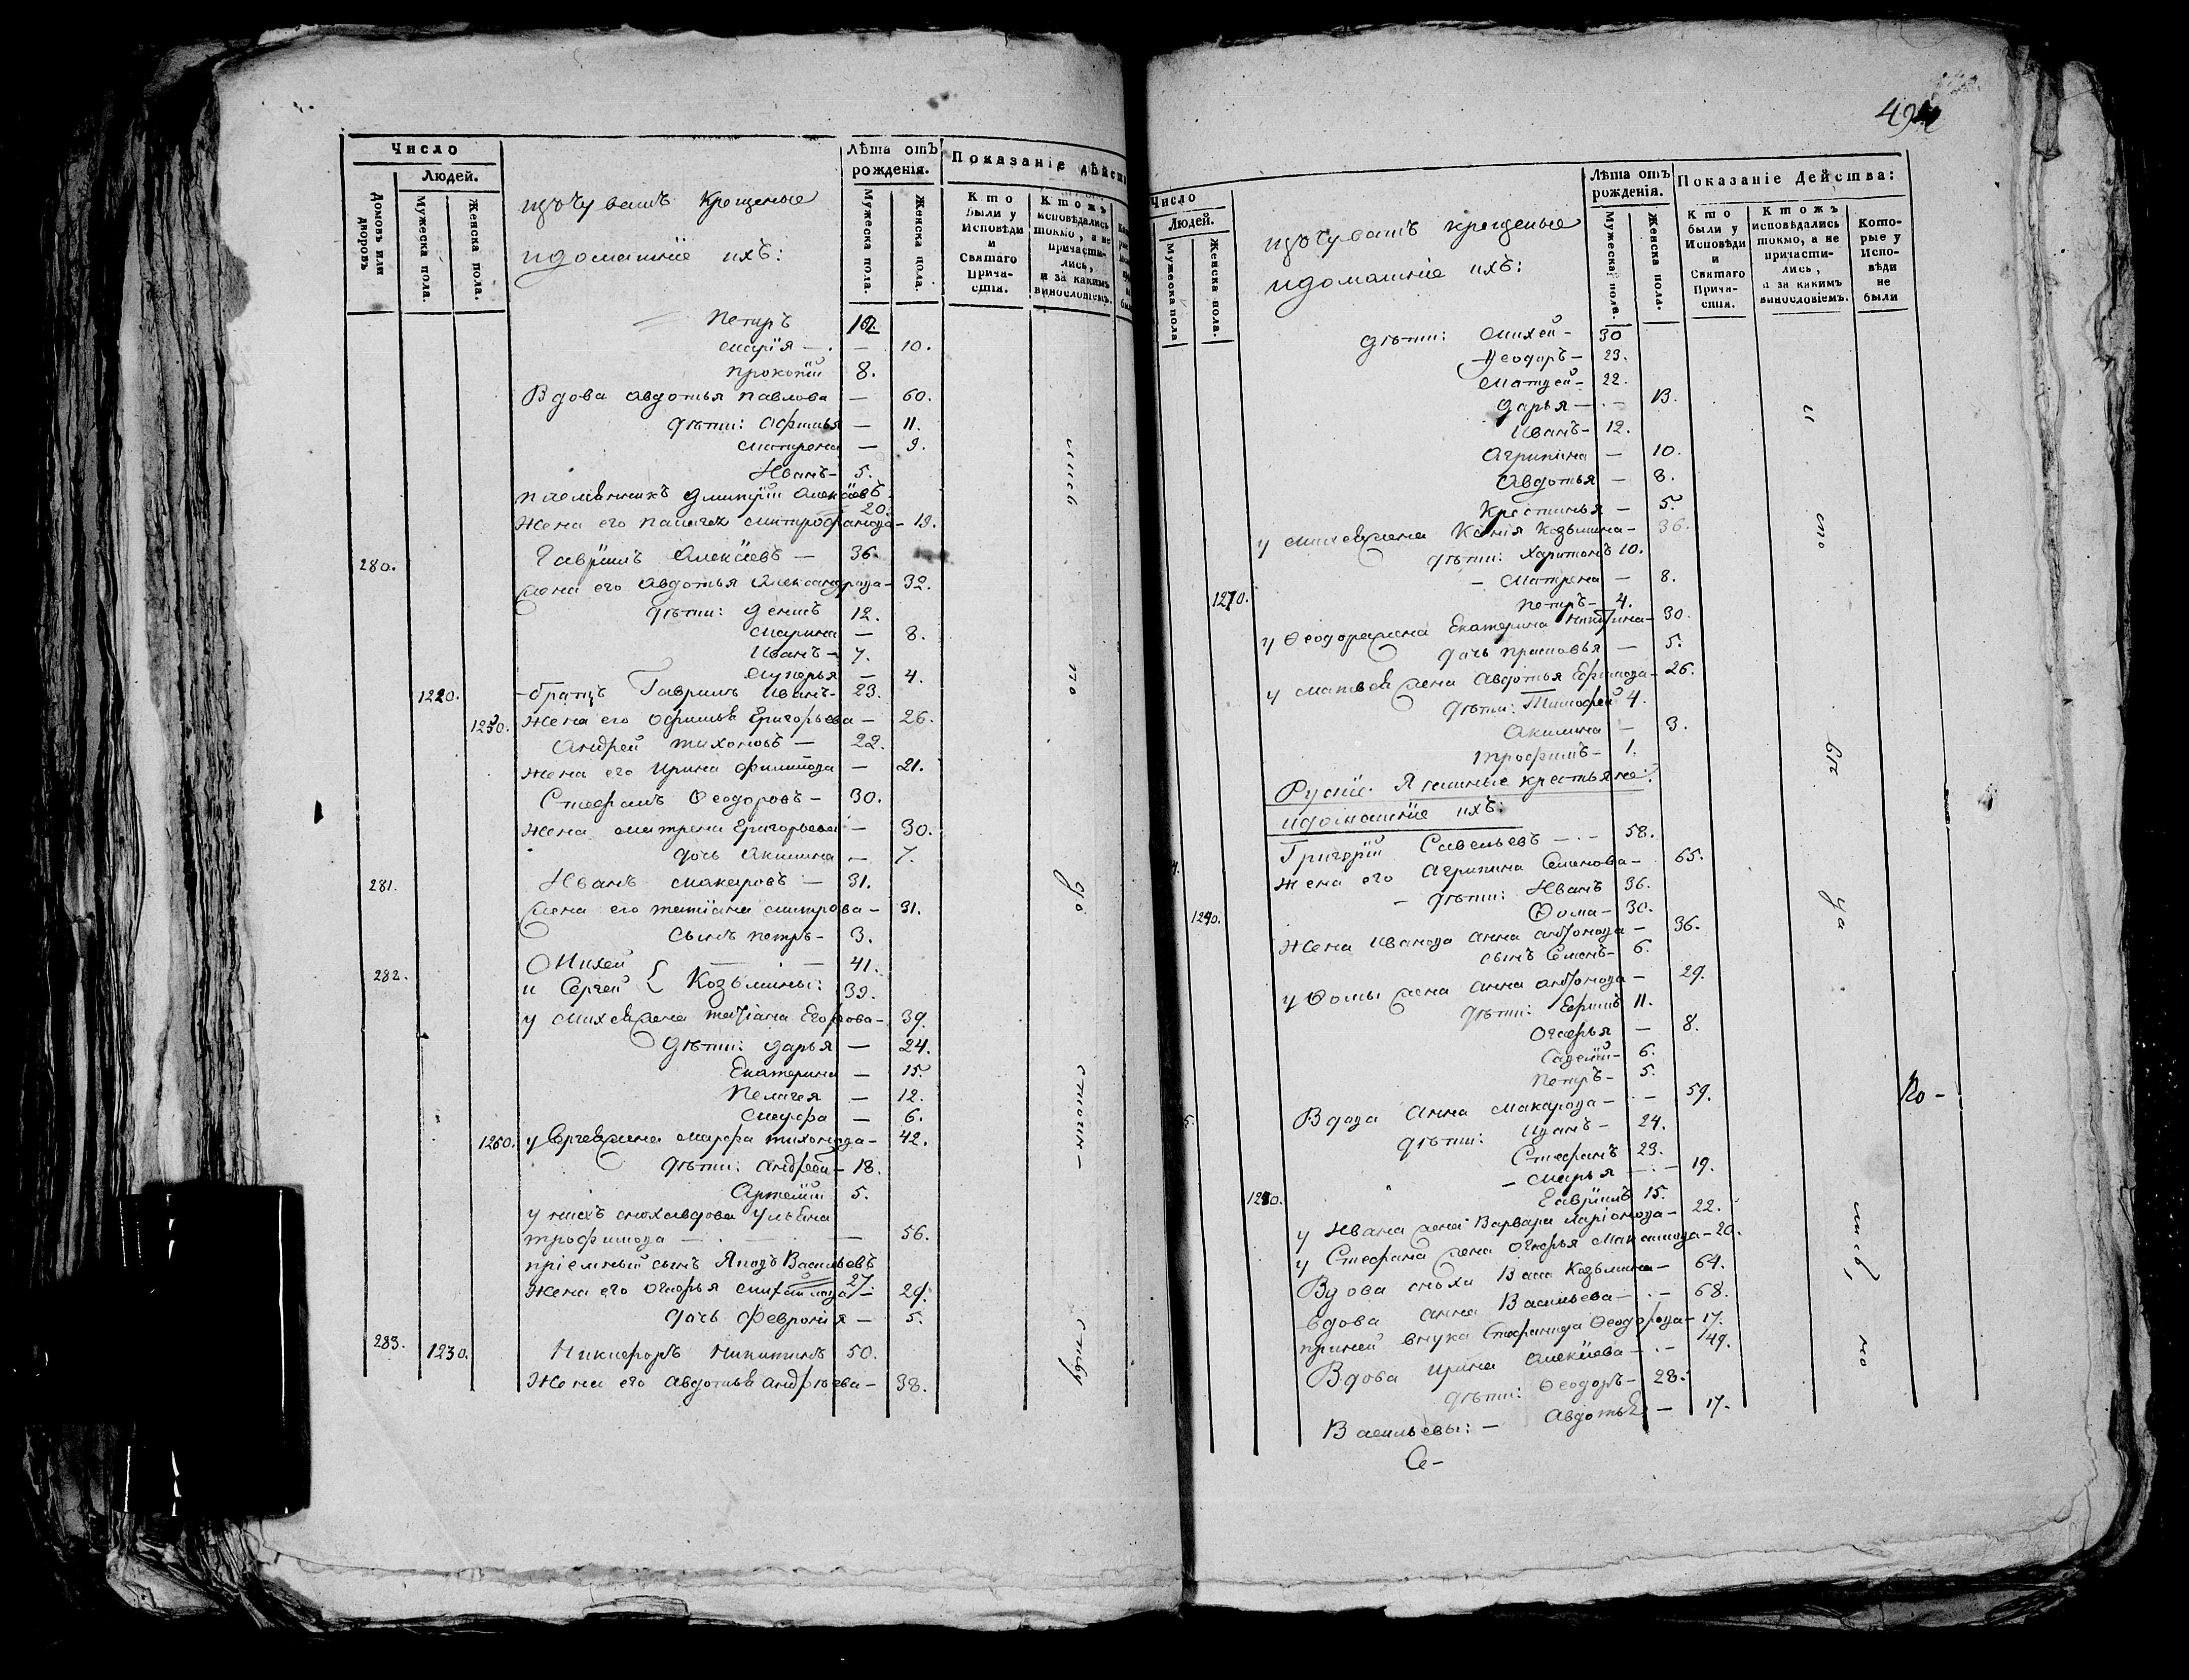 Число
Людей.
Домовъ или дворовъ
Мужеска пола.
Женска пола.
изъ Чувашъ крещеные
и домашніе ихъ:
Лѣта отъ рожденія.
Мужеска пола.
Женска пола.
Показаніе дѣйст
Кто были у Исповѣди и Святаго Причастія.
Ктожъ исповѣдались токмо, а не причастились, и за какимъ винословіемъ.
Петръ 12.
Марія — 10.
Прокопій 8.
Вдова Авдотья Павлова — 60.
дѣти: Офимья — 11.
Матрена — 9.
Иванъ — 5.
племянникъ Дмитрій Алексіевъ 20.
Жена его Палагея Митрофанова — 19.
280. Гавріилъ Алексіевъ — 36.
Жена его Авдотья Александрова — 32.
дѣти: Денисъ 12.
Марина — 8.
Иванъ — 7.
Лукерья — 4.
1220. братъ Гавріилъ Иванъ — 23.
1250. Жена его Офимья Григорьева — 26.
Андрей Тихоновъ — 22.
Жена его Ирина Филипова — 21.
Стефанъ Ѳеодоровъ — 30.
Жена Матрена Григорьева — 30.
дочь Акилина — 7.
281. Иванъ Макаровъ — 31.
Жена его Татіана Митрова — 31.
сынъ Петръ — 3.
282. Михей — 41.
и Сергей { Козьмины: 39.
у Михея жена Татіана Егорова — 39.
дѣти: Дарья — 24.
Екатерина — 15.
Пелагея — 12.
Марфа — 6.
1260. у Сергея жена Марфа Тихонова — 42.
дѣти: Андрей — 18.
Артемій 5.
у нихъ сноха вдова Ульяна
Трофимова — 56.
пріемный сынъ Яковъ Васильевъ 27.
Жена его Огафья Михайлова — 29.
дочь Февронія — 5.
283. 1230. Никифоръ Никитинъ 50.
Жена его Авдотья Андрѣева — 38.
494
Число
Людей.
Мужеска пола
Женска пола.
изъ Чувашъ крещеные
и домашніе ихъ:
Лѣта отъ рожденія.
Мужеска пола.
Женска пола.
Показаніе Действа:
Кто были у Исповѣди и Святаго Причастія.
Ктожъ исповѣдались токмо, а не причастились, и за какимъ винословіемъ.
Которые у Исповѣди не были
дѣти: Михей — 30
Ѳеодоръ — 23.
Матвей — 22.
Дарья — 13.
Иванъ — 12.
Агрипина — 10.
Авдотья — 8.
Крестинья — 5.
у Михея жена Ксенія Козьмина — 36.
дѣти: Харитонъ 10.
Матрена — 8.
1270. Петръ — 4.
у Ѳеодора жена Екатерина Никитина — 30.
дочь Прасковья — 5.
у Матвея жена Авдотья Ефимова — 26.
дѣти: Тимофей 4.
Акилина — 3.
Трофимъ — 1.
Рускіе Яшашные крестьяне:
и домашніе ихъ:
Григорій Савельевъ — 58.
Жена его Агрипина Семенова — 65.
дѣти: Иванъ 36.
Ѳома — 30.
Жена Иванова Анна Антонова — 36.
сынъ Семенъ — 6.
у Ѳомы жена Анна Антонова — 29.
дѣти: Ефимъ 11.
Огафья — 8.
Петръ — 5.
Вдова Анна Макарова — 59.
дѣти: Иванъ — 24.
Стефанъ 23.
Марья — 19.
Гавріилъ 15.
у Ивана жена Варвара Ларіонова — 22.
у Стефана жена Огафья Максимова — 20.
Вдова сноха Васа Козьмина — 64.
вдова Анна Васильева — 68.
при ней внука Стефанида Ѳеодорова — 17.
Вдова Ирина Алексіева — 49.
дѣти: Ѳеодоръ — 28.
Васильевы: — Авдотья — 17.
Се-